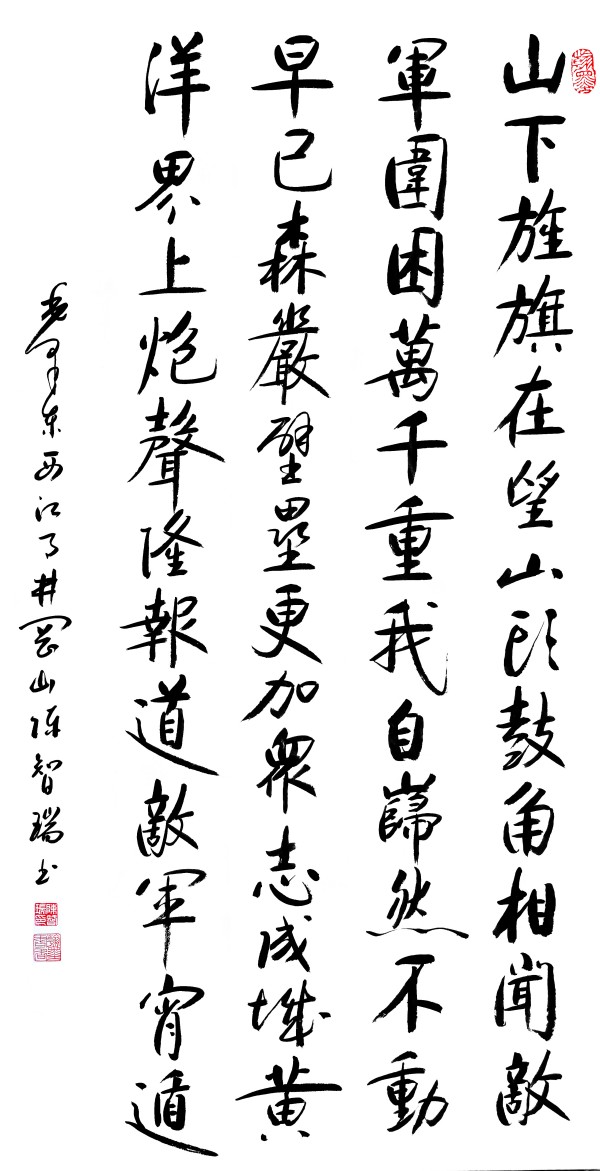 山下旌旗在望山頭鼓角相聞敵
軍圍困萬千重我自巋然不動
早已森嚴壁壘更加衆志成城黄
洋界上炮聲隆報道敵軍宵遁
毛澤东西江月井岡山陳智瑞书